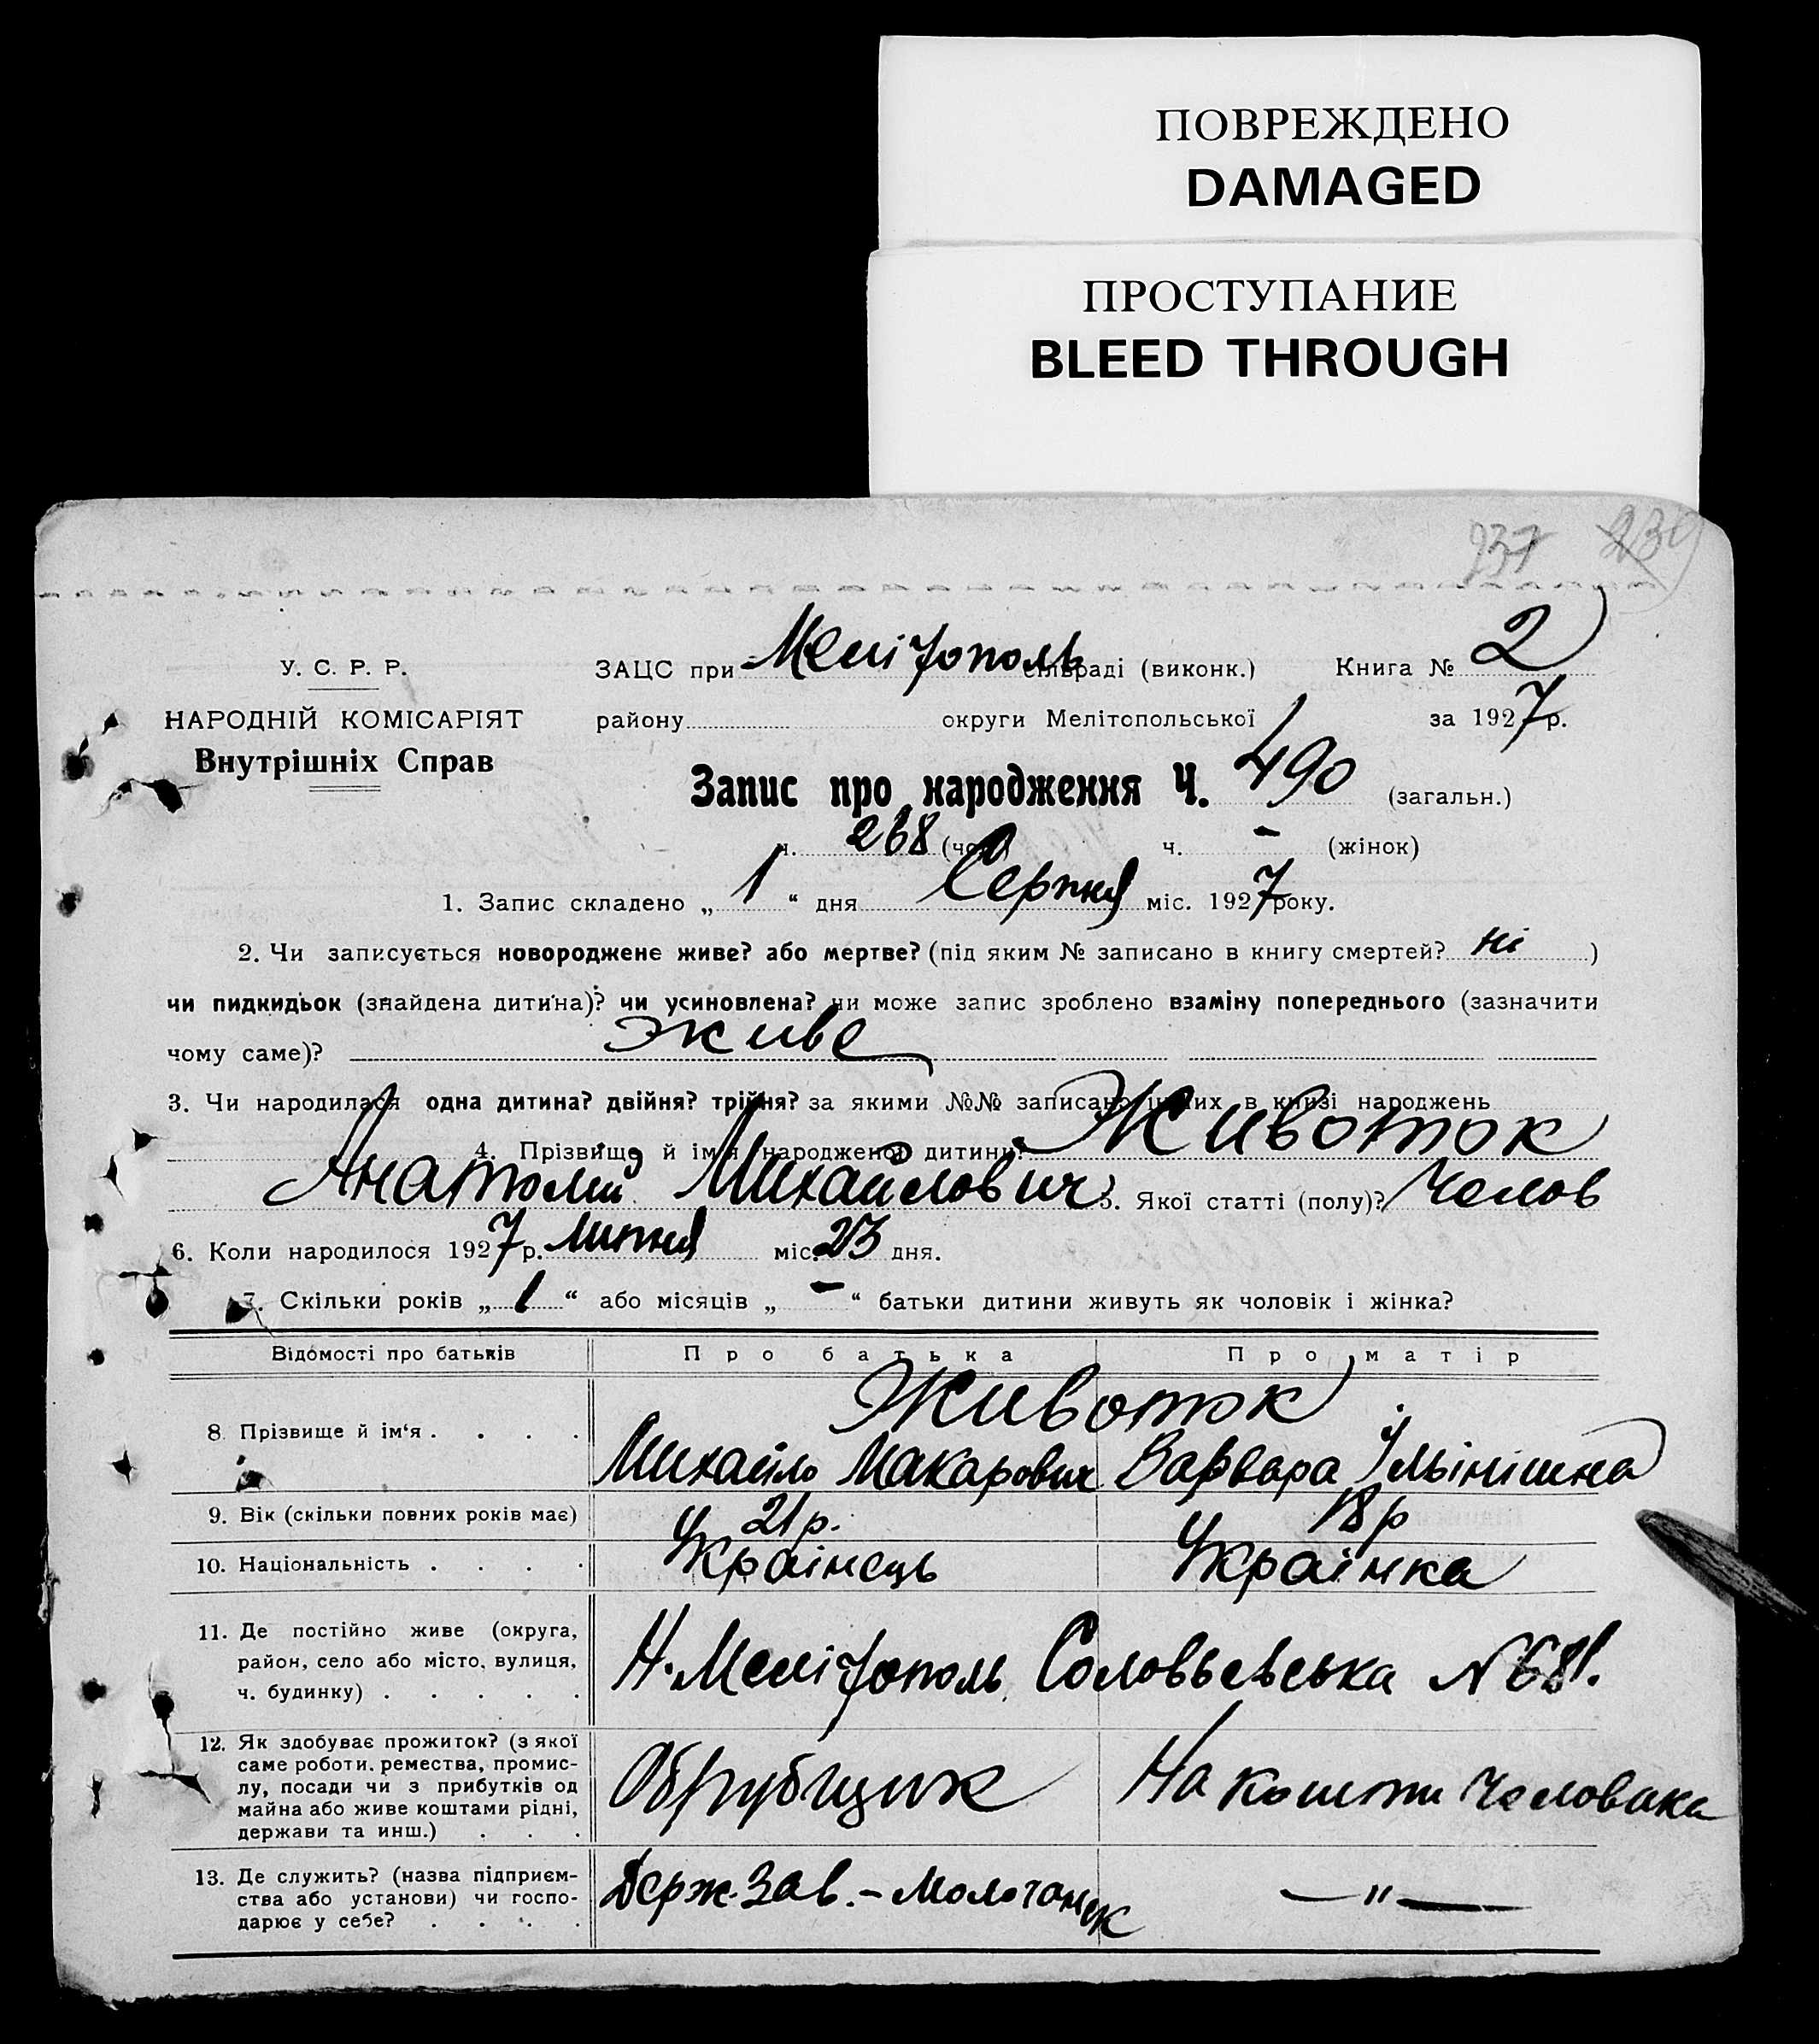 ПОВРЕЖДЕНО
DAMAGED
ПРОСТУПАНИЕ
BLEED THROUGH
237 239
У. С. Р. Р.
НАРОДНІЙ КОМІСАРІЯТ
Внутрішніх Справ
ЗАЦС при Мелітополь сільраді (виконк.) Книга № 2
району округи Мелітопольської за 1927 р.
Запис про народження Ч. 490 (загальн.)
ч. 268 (чол.) ч. - (жінок)
1. Запис складено „ 1 “ дня Серпня міс. 1927 року.
2. Чи записується новороджене живе? або мертве? (під яким № записано в книгу смертей? ні )
чи пидкидьок (знайдена дитина)? чи усиновлена? чи може запис зроблено взаміну попереднього (зазначити
чому саме)? живе
3. Чи народилася одна дитина? двійня? трійня? за якими №№ записано інших в книзі народжень
4. Прізвище й ім'я народженої дитини? Животок
Анатолий Михайлович 5. Якої статті (полу)? Челов
6. Коли народилося 1927 р. Липня міс. 23 дня.
7. Скільки років „ 1 “ або місяців „ - “ батьки дитини живуть як чоловік і жінка?
Відомості про батьків Про батька Про матір
8. Прізвище й ім'я . . . . Животок
Михайло Макарович Варвара Ільінішна
9. Вік (скільки повних років має) 21 р. 18 р
10. Національність . . . . Украінець Украінка
11. Де постійно живе (округа,
район, село або місто, вулиця,
ч. будинку) . . . . .
Н. Мелітополь Соловьевська №
12. Як здобуває прожиток? (з якої
саме роботи, ремества, промис-
лу, посади чи з прибутків од
майна або живе коштами рідні,
держави та инш.) . . .
Обрубщик На кошти человика
13. Де служить? (назва підприєм-
ства або установи) чи госпо-
дарює у себе? . . . .
Держ. Зав. - Молочанск — " —